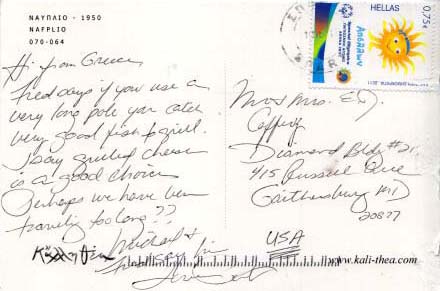 ΝΑΥΠΛΙΟ - 1950
NAFPLIO
070-064
HELLAS
0,75€
Hi from Greece
Fred says if you use a
very long pole you catch
very good fish to grill.
I say grilled cheese
is a good choice
Perhaps we have been
traveling too long??
Michael &
Mr & Mrs. E.J.
Diamond Bldg #21
415 Russell Ave
Gaithersburg MD
20877
USA
www.kali-thea.com